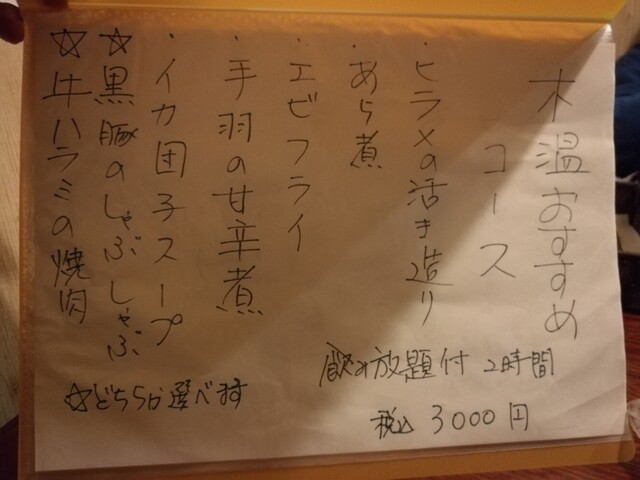 木温おすすめ
コース
・ヒラメの活き造り
・あら煮
・エビフライ
・手羽の甘辛煮
・イカ団子スープ
☆黒豚のしゃぶしゃぶ
☆牛ハラミの焼肉
飲み放題付 2時間
税込 3000円
☆どちらか選べます